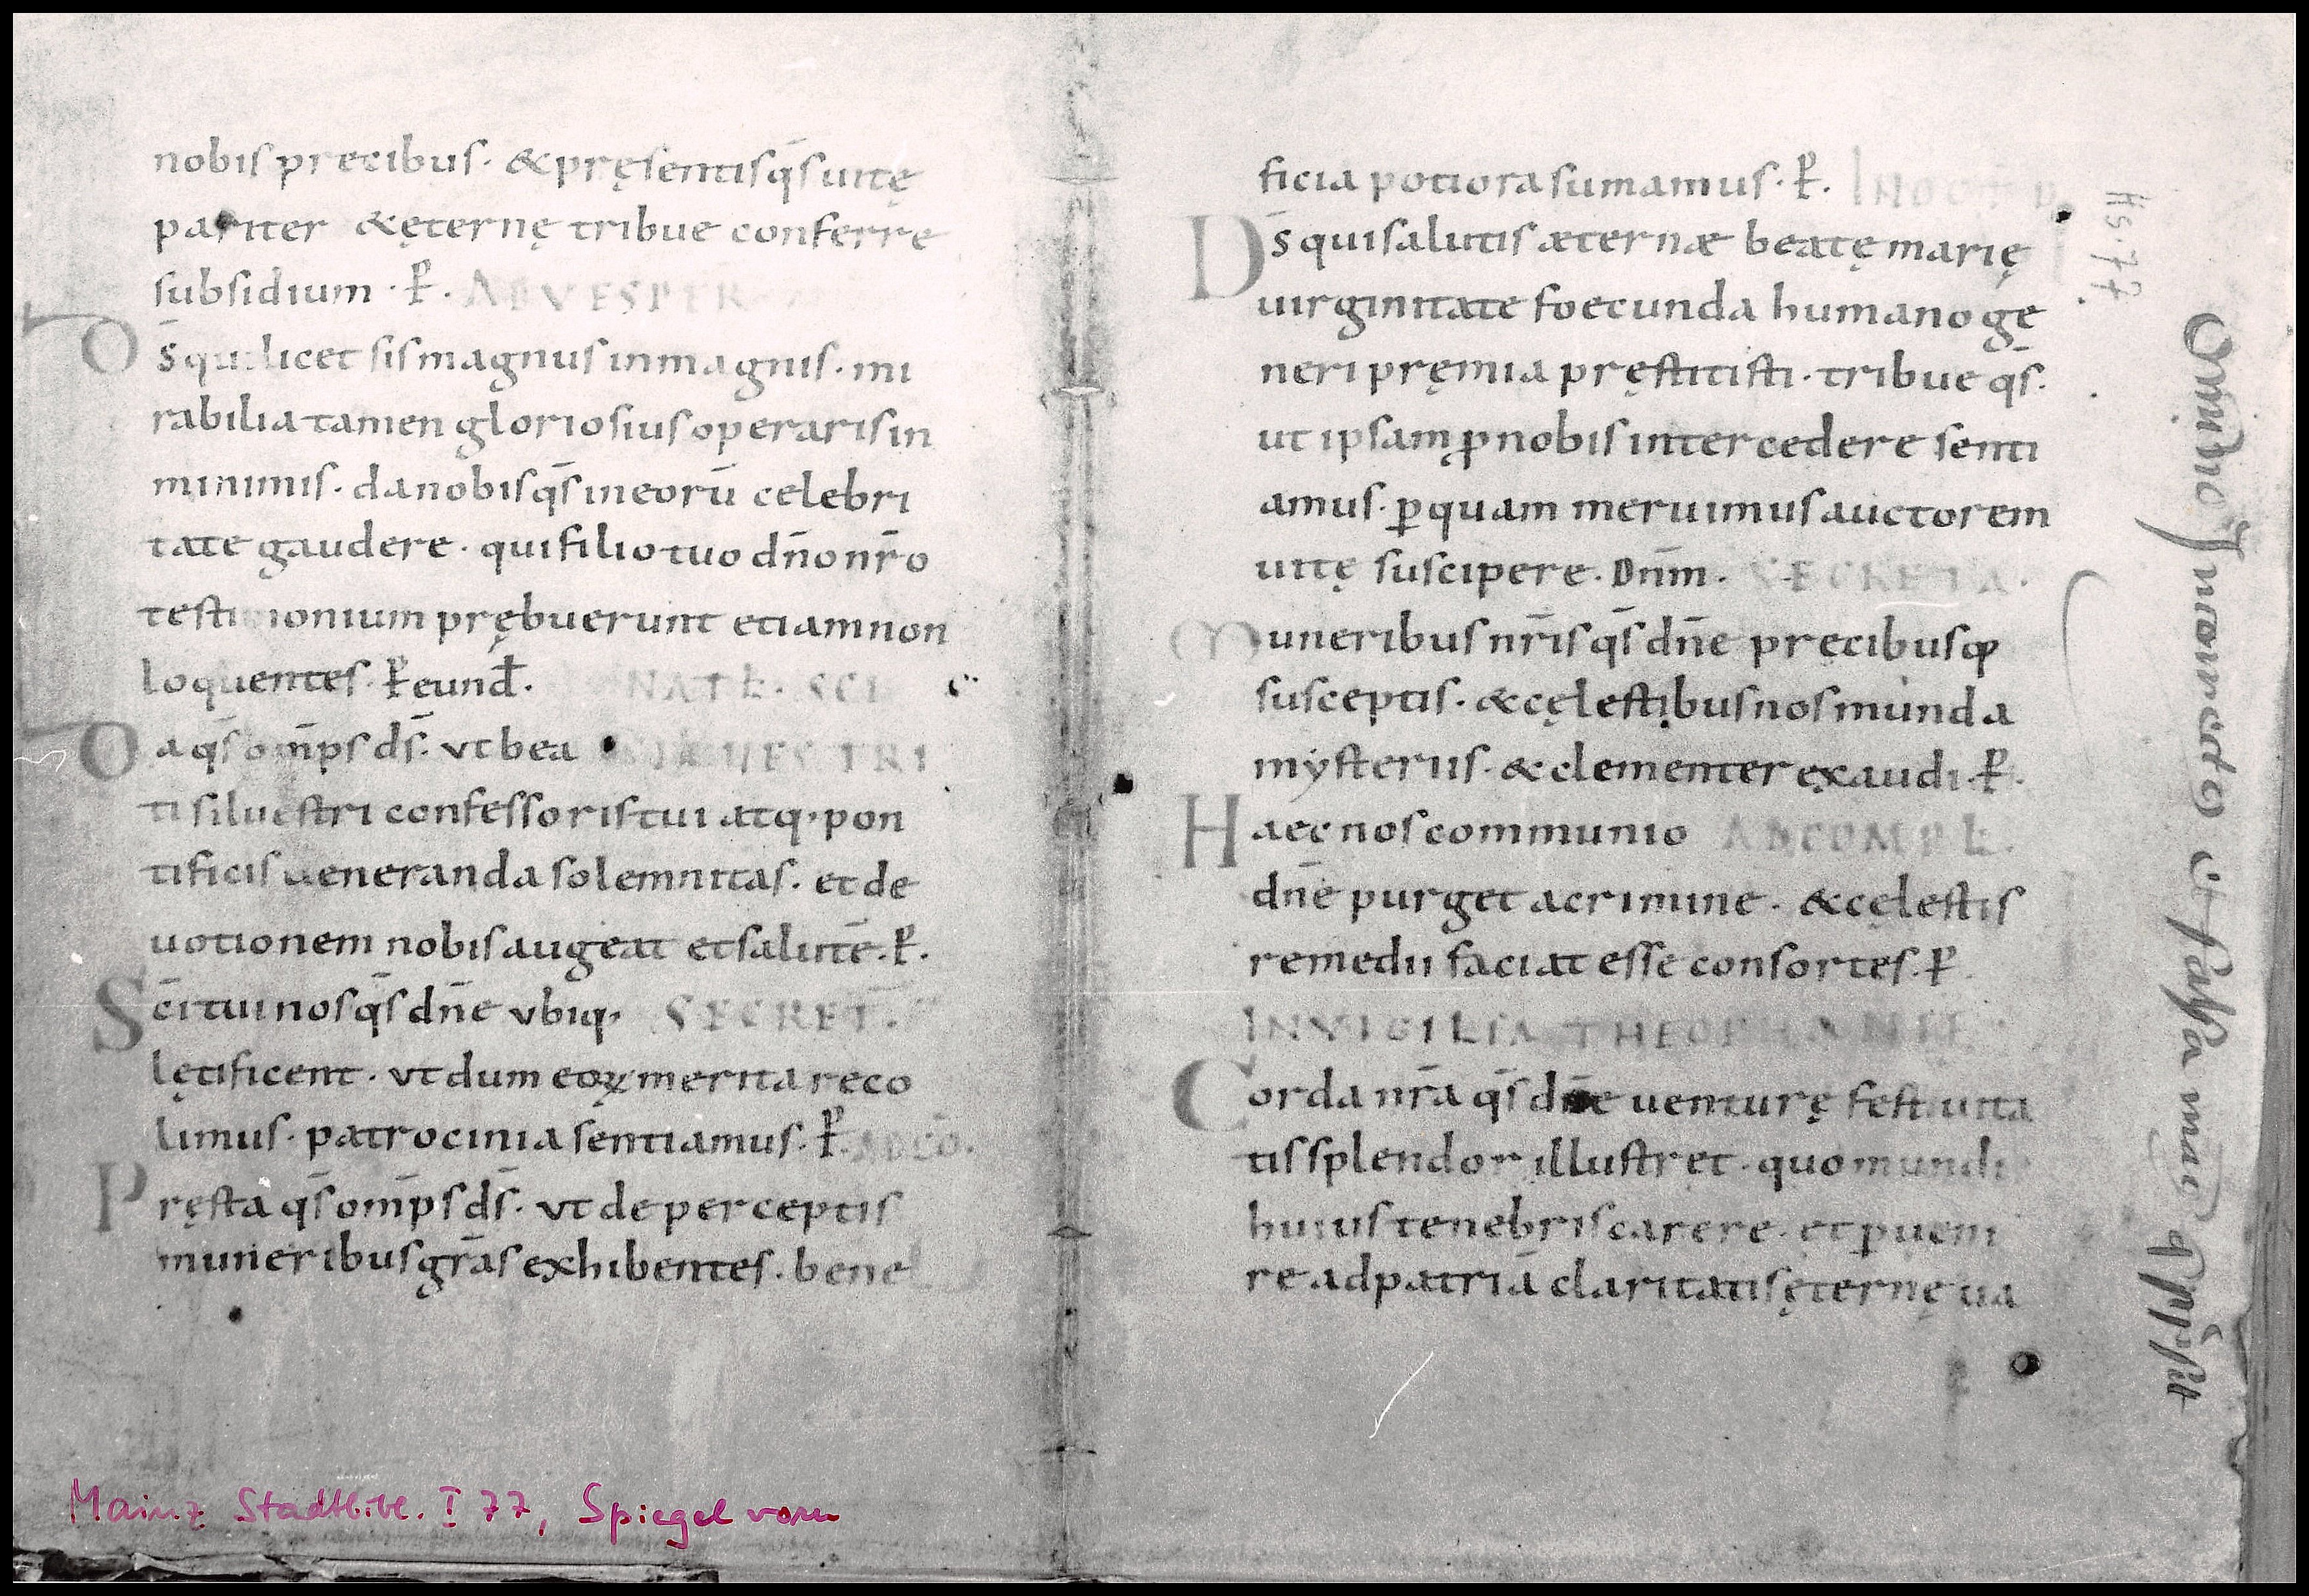 nobis precibus· & pręsentis q̄s uitę
pariter & ęternę tribue conferre
subsidium· P̲. AD VESPER
D̄s qui licet sis magnus in magnis· mi
rabilia tamen gloriosius operaris in
minimis· da nobis q̄s in eorū celebri
tate gaudere· qui filio tuo dn̄o nr̄o
testimonium prębuerunt etiam non
loquentes. P̲ eund̄. NATL. SCI
Da q̄s om̄ps d̄s. vt bea SILUESTRI
ti siluestri confessoris tui atq· pon
tificis ueneranda solemnitas. et de
uotionem nobis augeat et salutē. P̲.
Sc̄i tui nos q̄s dn̄e vbiq· SECRET.
lętificent· vt dum eoꝝ merita reco
limus· patrocinia sentiamus. P̲. AD CŌ.
Pręsta q̄s om̄ps d̄s. vt de perceptis
muneribus gr̄as exhibentes. bene
ficia potiora sumamus· P̲. IN OCT D
D̄s qui salutis æternæ beatę marię
uirginitate foecunda humano ge
neri pręmia pręstitisti· tribue q̄s.
ut ipsam ꝓ nobis intercedere senti
amus. ꝑ quam meruimus auctorem
uitę suscipere. Dn̄m. SECRETA.
Muneribus nr̄is q̄s dn̄e precibusq;
susceptis. & cęlestibus nos munda
mysteriis. & clementer exaudi. P̲.
Haec nos communio AD COMPL.
dn̄e purget a crimine. & cęlestis
remedii faciat esse consortes. P̲
IN VIGILIA THEOPHANIE
Corda nr̄a q̄s dn̄e venturę festiuita
tis splendor illustret. quo mundi
huius tenebris carere. et ꝑueni
re ad patriā claritatis ęternę ua
Hs. 77
Mainz Stadtbibl. I 77, Spiegel vorn